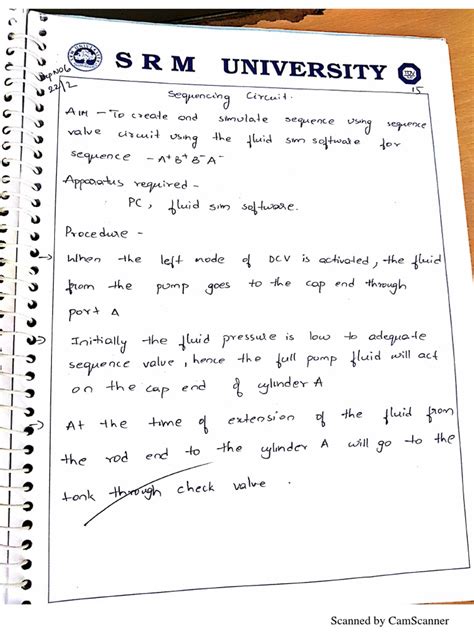 SRM UNIVERSITY
Exp No 6
22/2
15
Sequencing Circuit.
AIM - To create and simulate sequence using sequence
valve circuit using the fluid sim software for
sequence - A+ B+ B- A-
Apparatus required -
PC, fluid sim software.
Procedure -
→ When the left node of DCV is activated, the fluid
from the pump goes to the cap end through
port A
→ Initially the fluid pressure is low to adequate
sequence valve, hence the full pump fluid will act
on the cap end of cylinder A
→ At the time of extension of the fluid from
the rod end to the cylinder A will go to the
tank through check valve.
Scanned by CamScanner